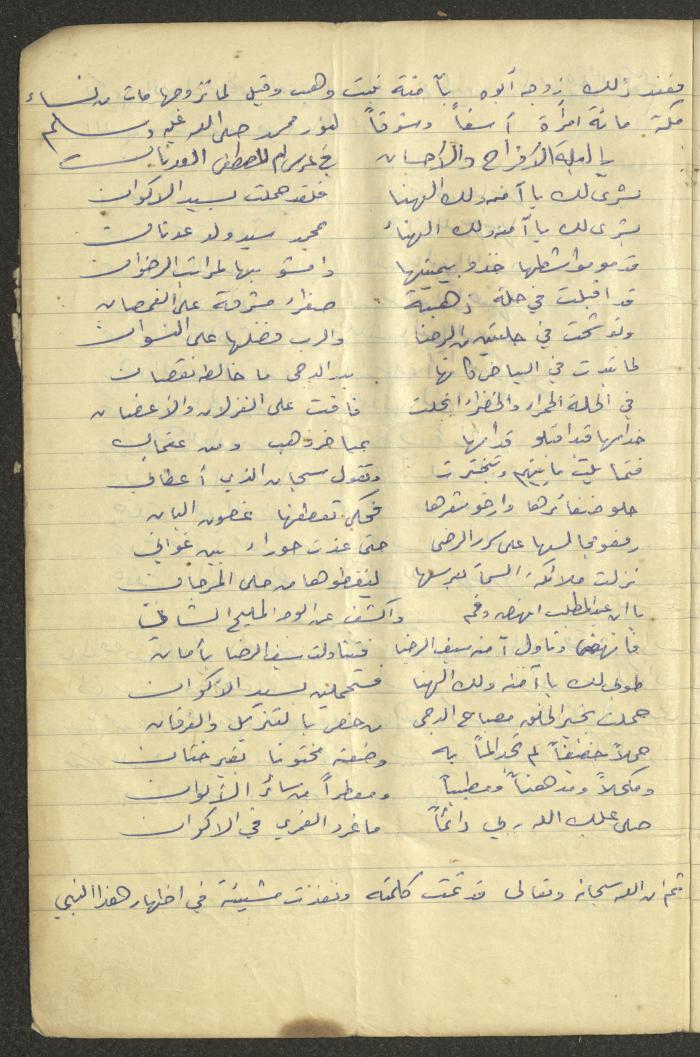 فعند ذلك زوجه أبوه بآمنة بنت وهب وقيل لما تزوجها مات من نساء
مكة مائة امرأة أسفاً وشوقاً لنور محمد صلى الله عليه وسلم
يا ليلة الأفراح والأحسان في عرس ام المصطفى العدنان
بشرى لك يا آمنه ولك الهنا فلقد حملت بسيد الاكوان
بشرى لك يا آمنه ولك الهناء محمد سيد ولد عدنان
قدموا مواشطها خذو بيمينها وامشو بها لمراتب الرضوان
قد اقبلت في حلة ذهبية صفراء مشرقة على القمصان
وتوشحت في حلتين من الرضا والرب فضلها على النسوان
لما تبدت في البياض كانها بدر الدجى ما خالط نقصان
في الحلة الحمراء والخضراء انجلت فاقت على الغزلان والأغصان
خدامها قد اقبلو قدامها بمباخر ذهب ومن عقيان
فتمايلت ما بينهم وتبخترت وتقول سبحان الذي أعطاني
حلو ضفائرها وارخو شعرها فحكى تعطفها غصون البان
رفعو مجالسها على كرر الرضى حتى غدت حوراء بين غواني
نزلت ملائكة السما لعرسها لينقطوها من حلى المرجان
يا ابن عبد المطلب انهض وقم واكشف عن الوجه المليح الشاني
فانهض وتناول آمنه سيف الرضا فتناولت سيف الرضا بأمان
طوبى لك يا آمنه ولك الهنا فستحملين بسيد الأكوان
حملت بخير الخلق مصباح الدجى من خص بالتنزيل والفرقان
حملاً خفيفاً لم تجد ألماً به وضعته مختونا بغير ختان
ومكحلاً ومدهناً ومطيباً ومعطراً من سائر الألوان
صلى عليك الله ربي دائماً ما غرد القمري في الاكوان
ثم ان الله سبحانه وتعالى قد تمت كلمته ونفذت مشيئة في اظهار هذا النبي